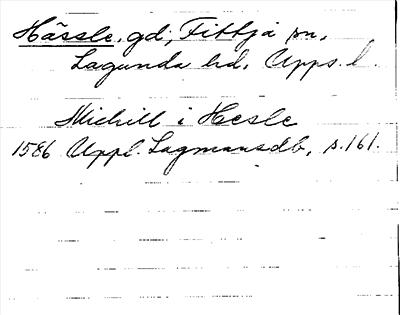 Hässle, gd, Fittja sn,
Lagunda hd. Upps. l.
Michill i Hesle
1586 Uppl. Lagmansdb, s. 161.